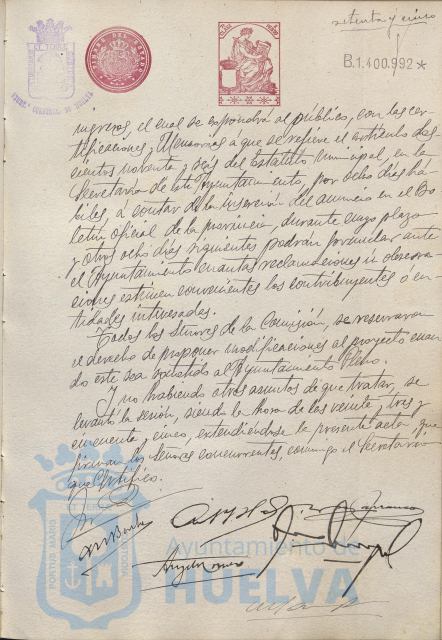 setenta y cinco
TIMBRE DEL ESTADO
B.1.400.992*
ingresos, el cual se expondrá al público, con las cer-
tificaciones y Memorias a que se refiere el artículo dos-
cientos noventa y seis del Estatuto municipal, en la
Secretaría de este Ayuntamiento, por ocho días há-
biles, á contar de la inserción del anuncio en el Bo-
letín Oficial de la provincia, durante cuyo plazo
y otros ocho días siguientes podrán formular ante
el Ayuntamiento cuantas reclamaciones u observa-
ciones estimen convenientes los contribuyentes ó en-
tidades interesadas.
Todos los Señores de la Comisión, se reservaron
el derecho de proponer modificaciones al proyecto cuan-
do este sea sometido al Ayuntamiento Pleno.
Y no habiendo otros asuntos de que tratar, se
levantó la sesión, siendo la hora de las veinte y tres y
cincuenta y cinco, extendiéndose la presente acta, que
firman los Señores concurrentes, conmigo el Secretario
que certifico.
PORTUS MARIS
Ayuntamiento de
HUELVA